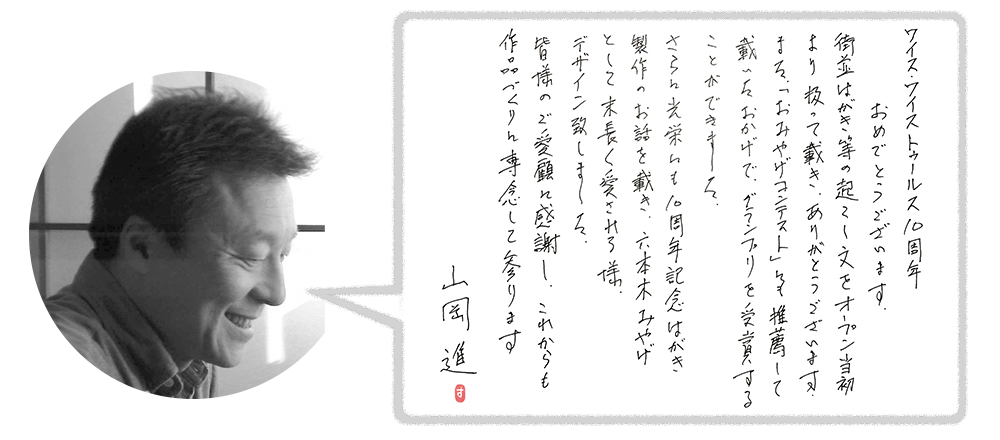 ワイス・ワイストゥールス10周年
おめでとうございます。
街並はがき等の起こし文をオープン当初
より扱って載き、ありがとうございます。
また、「おみやげコンテスト」にも推薦して
載いたおかげで、グランプリを受賞する
ことができました。
さらに光栄にも10周年記念はがき
製作のお話を載き、六本木みやげ
として末長く愛される様、
デザイン致しました。
皆様のご愛顧に感謝し、これからも
作品づくりに専念して参ります
山岡 進
す